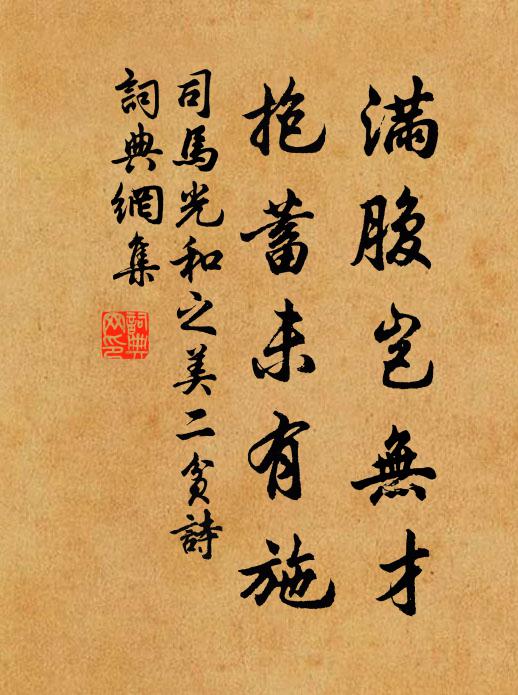 滿腹豈無才
抱蓄未有施
司馬光和之美二貧詩
詞典網集
詞典
网印